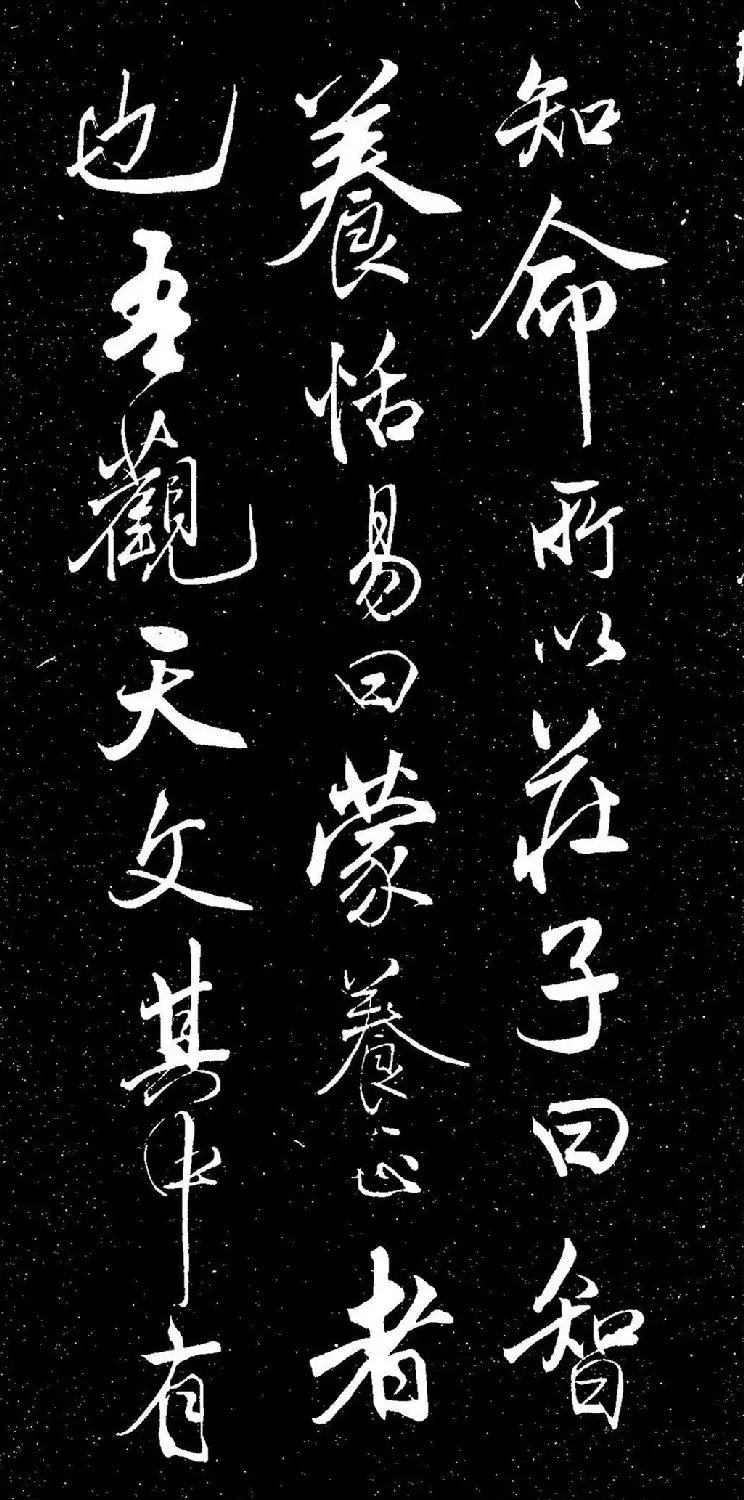 知命所以莊子曰智
養恬易曰蒙養正者
也吾觀天文其中有